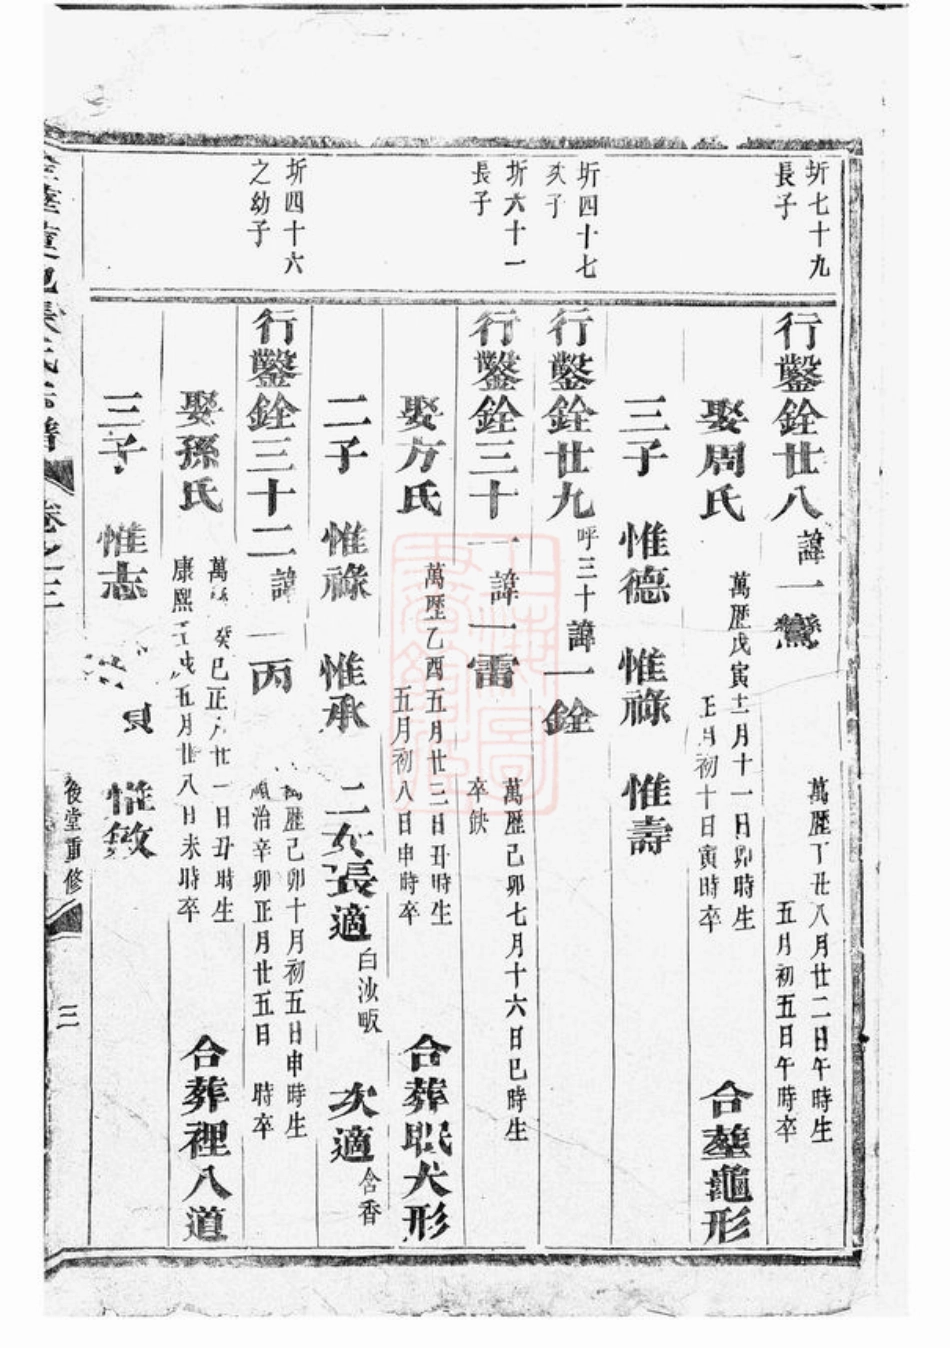 圻七十九
長子
行鑿銓廿八
諱一鸞
萬歷丁丑八月廿二日午時生
五月初五日午時卒
娶周氏
萬歷戊寅十二月十一日卯時生
正月初十日寅時卒
合塟龜形
三子 惟德 惟祿 惟壽
圻四十七
次子
行鑿銓廿九
呼三十諱一銓
圻六十一
長子
行鑿銓三十一
諱一雷
萬歷己卯七月十六日巳時生
卒缺
娶方氏
萬歷乙酉五月廿三日丑時生
五月初八日申時卒
合葬眠犬形
二子 惟祿 惟承 二女長適
白沙畈
次適
含香
圻四十六
之幼子
行鑿銓三十二
諱一丙
萬歷己卯十月初五日申時生
順治辛卯正月廿五日 時卒
娶孫氏
萬 癸巳正月廿一日丑時生
康熙壬戌五月廿八日未時卒
合葬裡八道
三子 惟志 惟敘
氏宗譜
卷之三
後堂重修
三